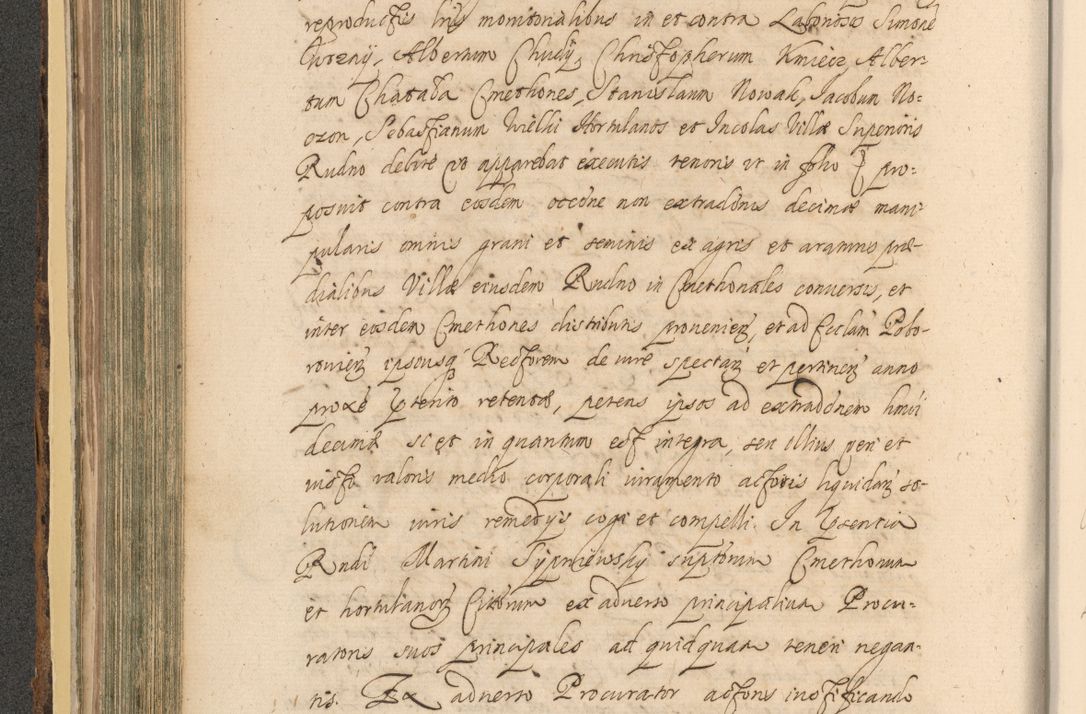 reproductis lris monitorialibus in et contra Labonos Simone
Gorzny, Albertum Chudy, Christopherum Kmiecz, Alber-
tum Chataba Cmethones, Stanislaum Nowak, Jacobum No-
ozon, Sebastianum Wielki Hortulanos et Incolas Villæ Superioris
Rudno debite ut apparebat executis tenoris ut in folio pro-
posuit contra eosdem occone non extradionis decimæ mani-
pularis omnis grani et seminis ex agris et araturis præ-
dialibus Villæ eiusdem Rudno in Cmethonales conversis, et
inter eosdem Cmethones distributis provenien, et ad Ecclam Pobo-
rovien ipsiusq Rectorem de iure spectan et pertinen anno
proxe pterito retentæ, petens ipsos ad extradonem hmoi
decimæ si et in quantum est integra, seu illius veri et
iusti valoris medio corporali iuramento actoris liquidan so-
lutionem iuris remedijs cogi et compelli. In psentia
Rndi Martini Sypniewsky suptorum Cmethonum
et hortulanor Citorum ex adverso principalium Procu-
ratoris suos principales ad quidquam teneri negan-
tis. Ex adverso Procurator actoris iustificando